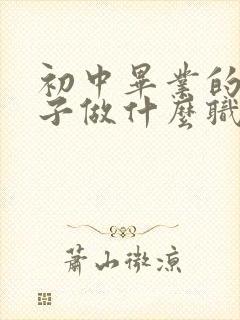 初中畢業的
子做什麼職
蕭山微涼